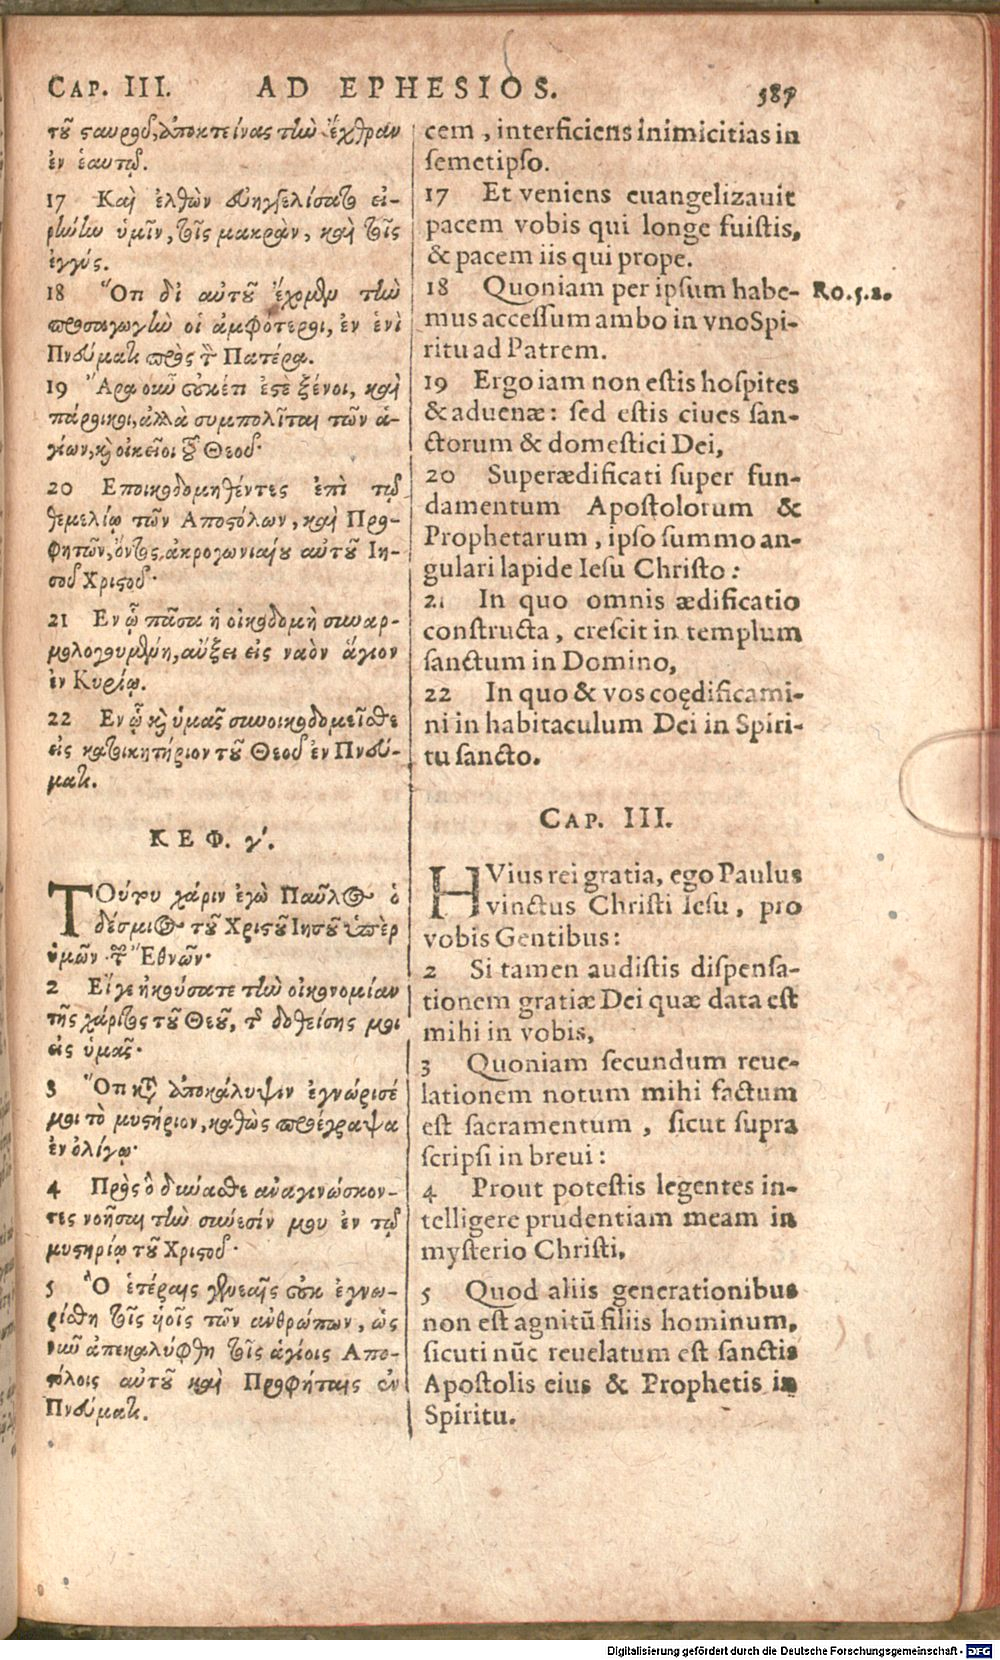 CAP. III. AD EPHESIOS. 587
τοῦ σταυροῦ, ἀποκτείνας τὴν ἔχθραν
ἐν ἑαυτῷ.
17 Καὶ ἐλθὼν εὐηγγελίσατο εἰ-
ρήνην ὑμῖν, τοῖς μακρὰν, καὶ τοῖς
ἐγγύς.
18 Ὅτι δι αὐτοῦ ἔχομεν τὴν
προσαγωγὴν οἱ ἀμφότεροι, ἐν ἑνὶ
Πνεύματι πρὸς τὸν Πατέρα.
19 Ἄρα οὖν οὐκέτι ἐστὲ ξένοι, καὶ
πάροικοι, ἀλλὰ συμπολῖται τῶν ἁ-
γίων, καὶ οἰκεῖοι τοῦ Θεοῦ·
20 Εποικοδομηθέντες ἐπὶ τῷ
θεμελίῳ τῶν Αποστόλων, καὶ Προ-
φητῶν, ὄντος ἀκρογωνιαίου αὐτοῦ Ιη-
σοῦ Χριστοῦ·
21 Εν ᾧ πᾶσα ἡ οἰκοδομὴ συναρ-
μολογουμένη, αὔξει εἰς ναὸν ἅγιον
ἐν Κυρίῳ.
22 Εν ᾧ καὶ ὑμᾶς συνοικοδομεῖσθε
εἰς κατοικητήριον τοῦ Θεοῦ ἐν Πνεύ-
ματι.
ΚΕΦ. γ΄.
ΤΟύτου χάριν ἐγὼ Παῦλος ὁ
δέσμιος τοῦ Χριστοῦ Ιησοῦ ὑπὲρ
ὑμῶν τῶν Ἐθνῶν·
2 Εἴγε ἠκούσατε τὴν οἰκονομίαν
τῆς χάριτος τοῦ Θεοῦ, τῆς δοθείσης μοι
εἰς ὑμᾶς·
3 Ὅτι κατὰ ἀποκάλυψιν ἐγνώρισέ
μοι τὸ μυστήριον, καθὼς προέγραψα
ἐν ὀλίγῳ·
4 Πρὸς ὃ δύνασθε ἀναγινώσκον-
τες νοῆσαι τὴν σύνεσίν μου ἐν τῷ
μυστηρίῳ τοῦ Χριστοῦ·
5 Ὃ ἑτέραις γενεαῖς οὐκ ἐγνω-
ρίσθη τοῖς υἱοῖς τῶν ἀνθρώπων, ὡς
νῦν ἀπεκαλύφθη τοῖς ἁγίοις Απο-
στόλοις αὐτοῦ καὶ Προφήταις ἐν
Πνεύματι.
cem, interficiens inimicitias in
semetipso.
17 Et veniens euangelizauit
pacem vobis qui longe fuistis,
& pacem iis qui prope.
18 Quoniam per ipsum habe-
mus accessum ambo in vno Spi-
ritu ad Patrem.
Ro. 5. 2.
19 Ergo iam non estis hospites
& aduenæ: sed estis ciues san-
ctorum & domestici Dei,
20 Superædificati super fun-
damentum Apostolorum &
Prophetarum, ipso summo an-
gulari lapide Iesu Christo:
21 In quo omnis ædificatio
constructa, crescit in templum
sanctum in Domino,
22 In quo & vos coędificami-
ni in habitaculum Dei in Spiri-
tu sancto.
CAP. III.
HVius rei gratia, ego Paulus
vinctus Christi Iesu, pro
vobis Gentibus:
2 Si tamen audistis dispensa-
tionem gratiæ Dei quæ data est
mihi in vobis,
3 Quoniam secundum reue-
lationem notum mihi factum
est sacramentum, sicut supra
scripsi in breui:
4 Prout potestis legentes in-
telligere prudentiam meam in
mysterio Christi,
5 Quod aliis generationibus
non est agnitū filiis hominum,
sicuti nūc reuelatum est sanctis
Apostolis eius & Prophetis in
Spiritu.
Digitalisierung gefördert durch die Deutsche Forschungsgemeinschaft - DFG